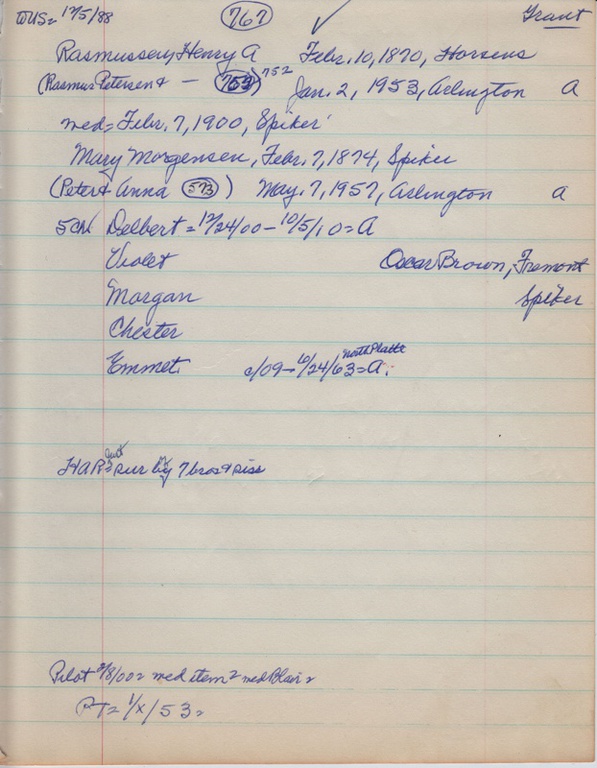 TUS = 12/5/88 767 ✓ Grant
Rasmussen, Henry A Febr. 10, 1870, Horsens
(Rasmus Petersen & — 753) 752 Jan. 2, 1953, Arlington A
med = Febr. 7, 1900, Spiker
Mary Morgensen, Febr. 7, 1874, Spiker
(Peter & Anna 573) May. 7, 1957, Arlington a
5 CH Delbert = 12/24/00 - 10/5/10 = A
Violet Oscar Brown, Fremont
Morgan Spiker
Chester
Emmet. c/09 - 6/24/63 = A; North Platte
HAR = sur by 7 bros & siss
Pilot 2/8/00 = med item = med Blair =
PT = 1/x/53 =